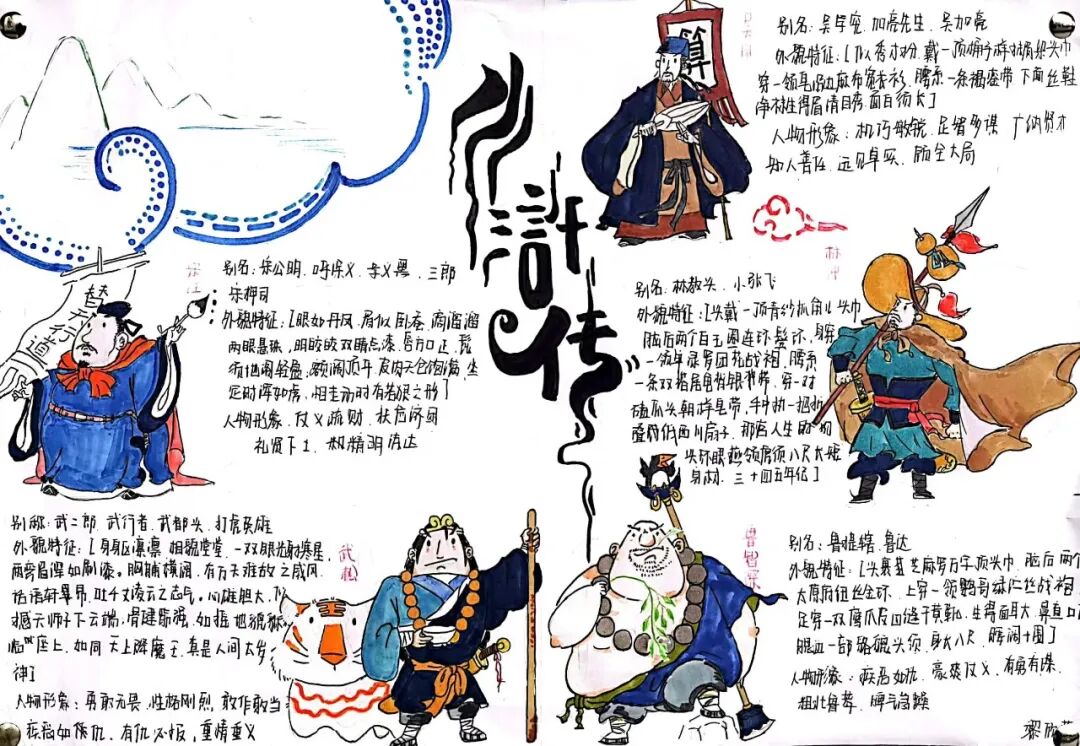 水浒传
算
别名：吴学究、加亮先生、吴加亮
外貌特征：[似秀才打扮,戴一顶桶子样抹眉梁头巾
穿一领皂沿边麻布宽衫,腰系一条褐銮带 下面丝鞋
净袜生得眉清目秀 面白须长]
人物形象：机巧敏锐、足智多谋 广纳贤才
知人善任、远见卓实、顾全大局
宋江
替天行道
别名：宋公明、呼保义、孝义黑三郎
宋押司
外貌特征：[眼如丹凤、眉似卧蚕、滴溜溜
两眼悬珠,明皎皎双睛点漆、唇方口正、髭
须地阁轻盈、额阔顶平、皮肉天仓饱满、坐
定时浑如虎,相走动时有若狼之形]
人物形象、仗义疏财、扶危济困
礼贤下士、权精明洒达
林冲
别名：林教头、小张飞
外貌特征：[头戴一顶青纱抓角儿头巾
脑后两个白玉圈连珠鬓环,身穿
一领单绿罗团花战袍、腰系
一条双搭尾龟背银带、穿一对
磕瓜头朝样皂靴、手中执一把折
叠纸西川扇子、那官人生的豹
头环眼燕颔虎须八尺长短
身材、三十四五年纪]
武松
别称：武二郎、武行者、武都头、打虎英雄
外貌特征：[身躯凛凛、相貌堂堂、一双眼光射寒星,
两弯眉浑如刷漆。胸脯横阔、有万夫难敌之威风、
话语轩昂、吐千丈凌云之志气。心雄胆大、
撼天狮子下云端,骨健筋强、如摇地貔貅
临座上、如同天上降魔王,真是人间太岁
神]
人物形象：勇敢无畏、性格刚烈、敢作敢当
疾恶如仇、有仇必报、重情重义
鲁智深
别名：鲁提辖、鲁达
外貌特征：[头裹芝麻罗万字顶头巾、脑后两个
太原府纽丝金环、上穿一领鹦哥绿纻丝战袍
足穿一双鹰爪皮四缝干黄靴、生得面圆耳大、鼻直口
腮边一部貉貔头须,身长八尺、腰阔十围]
人物形象：疾恶如仇、豪爽仗义、有勇有谋、
粗中有细、脾气急躁